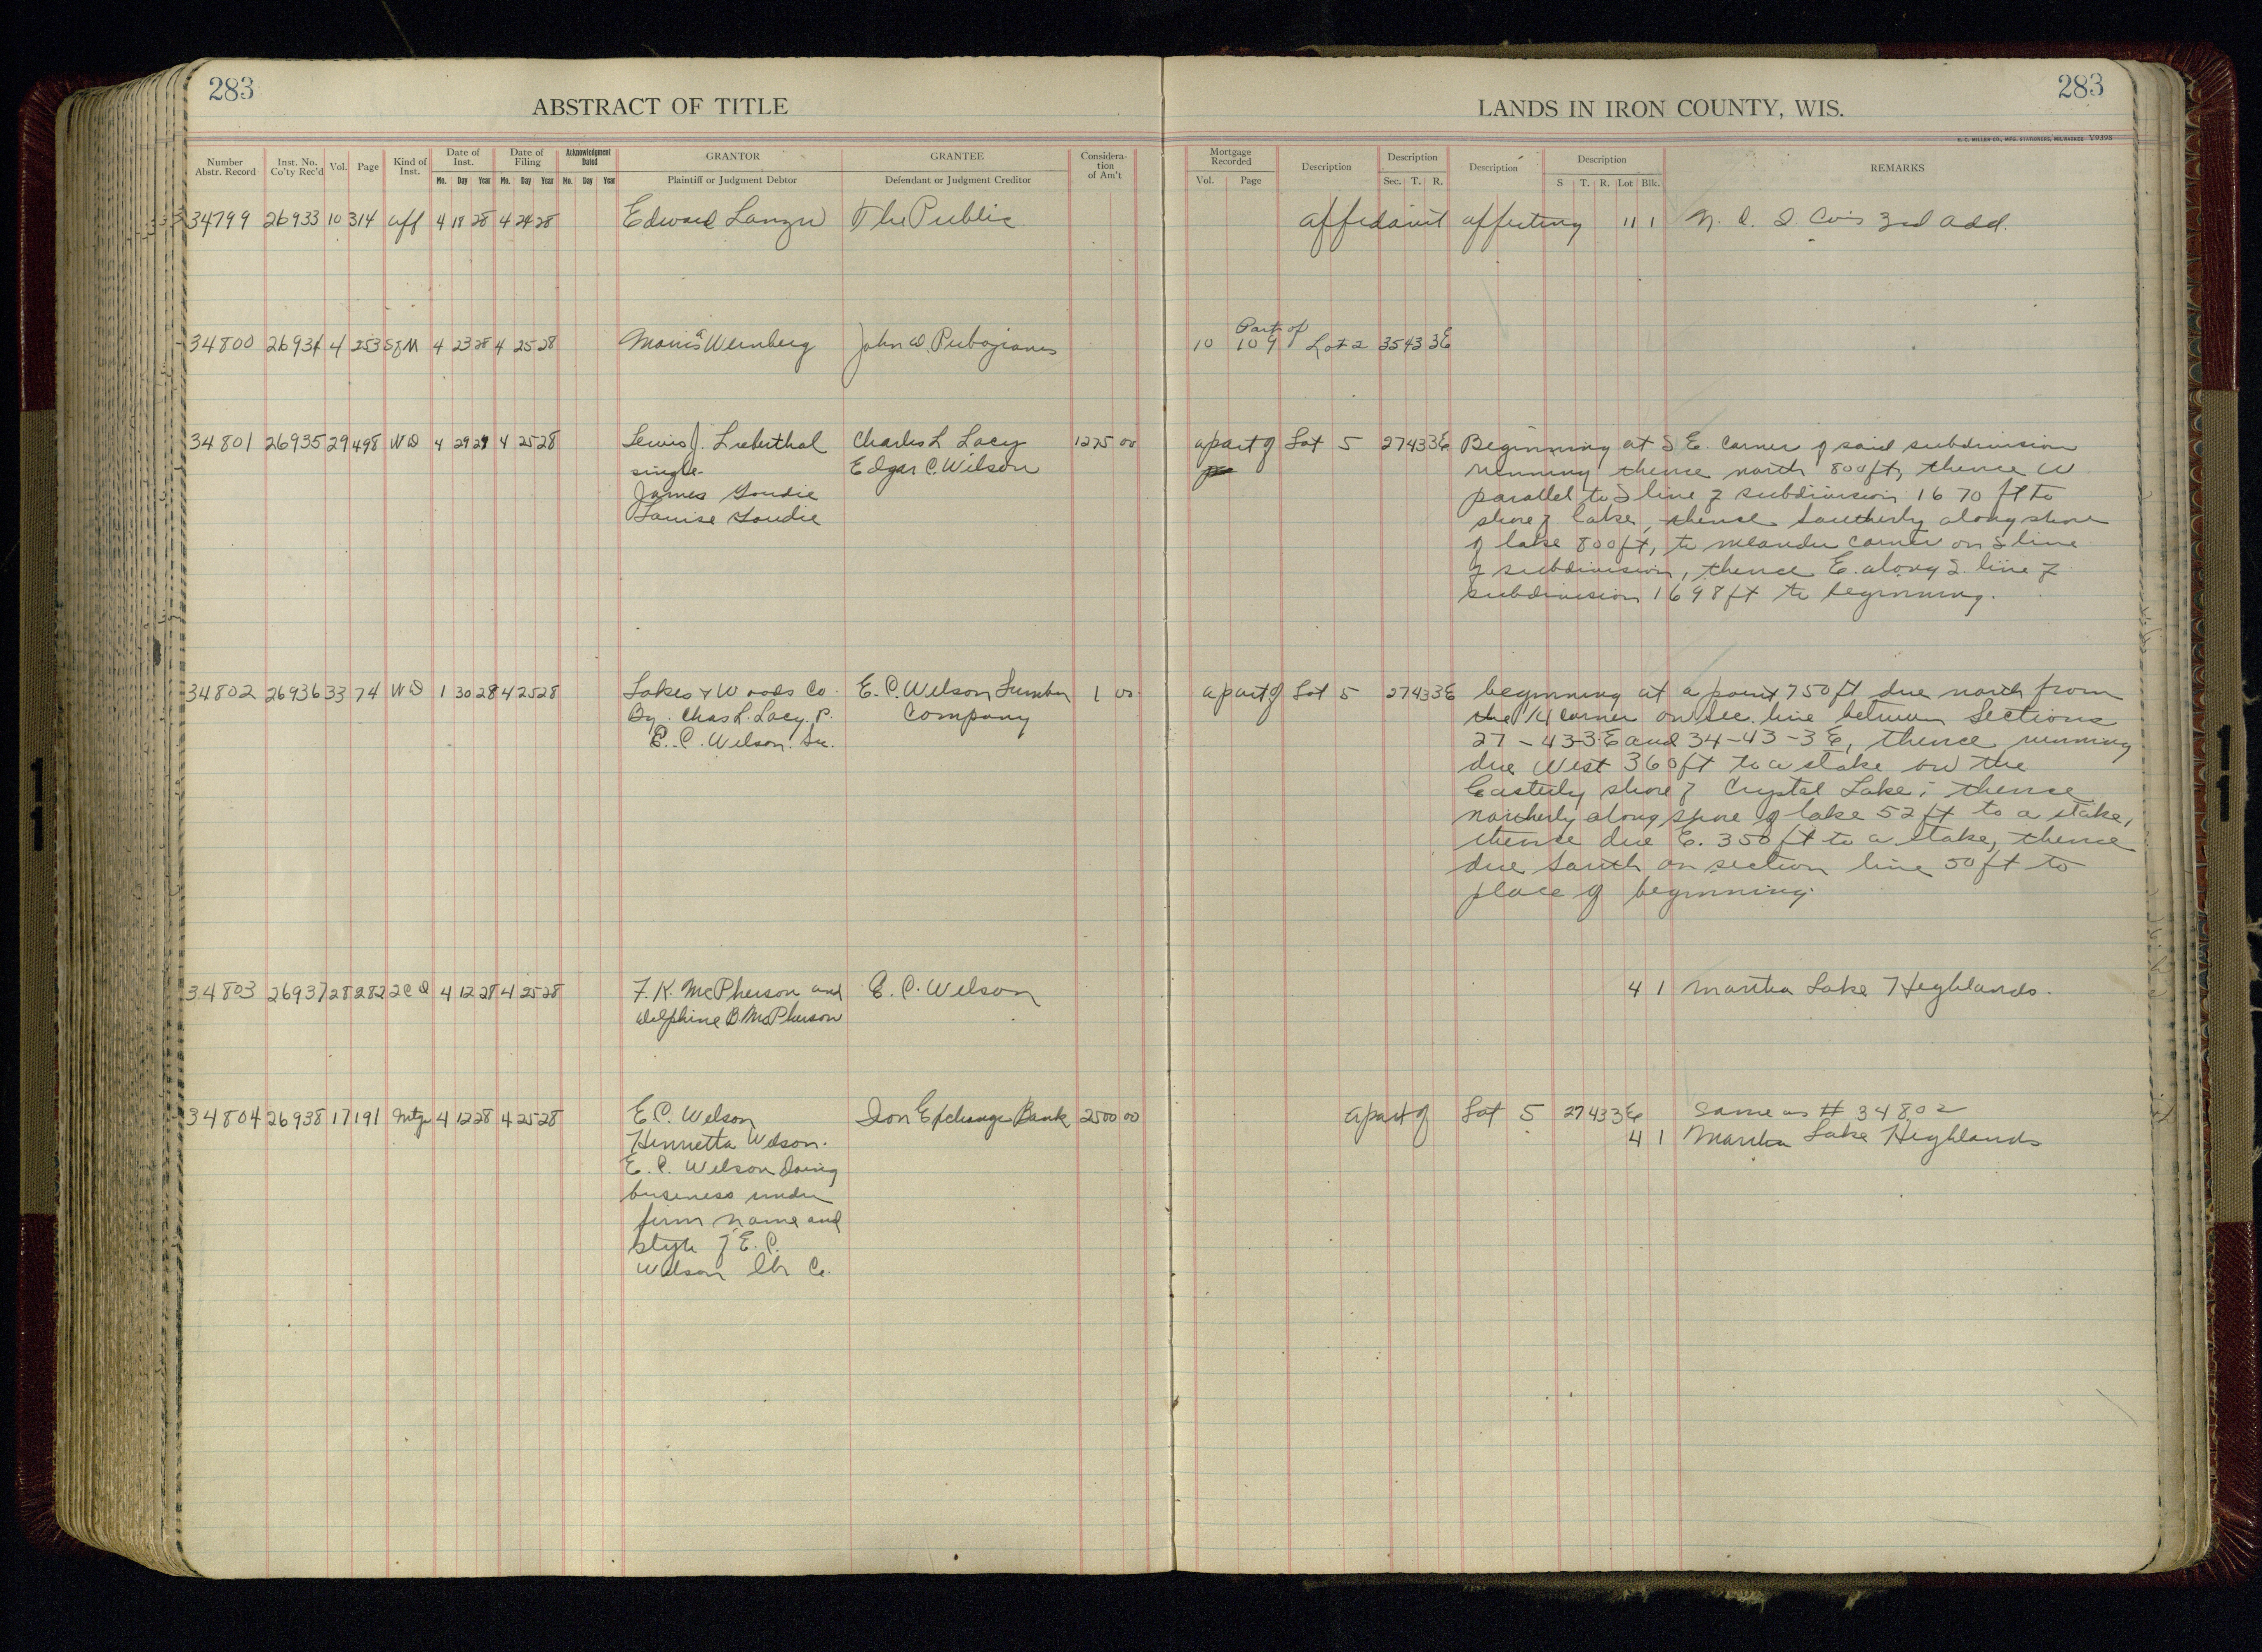 283
ABSTRACT OF TITLE
Number Abstr. Record | Inst. No. Co'ty Rec'd | Vol. | Page | Kind of Inst. | Date of Inst. Mo. Day Year | Date of Filing Mo. Day Year | Acknowledgment Dated Mo. Day Year | GRANTOR Plaintiff or Judgment Debtor | GRANTEE Defendant or Judgment Creditor | Considera- tion of Am't
283
LANDS IN IRON COUNTY, WIS.
H. C. MILLER CO., MFG. STATIONERS, MILWAUKEE V9393
Mortgage Recorded Vol. Page | Description | Description Sec. T. R. | Description | Description S T. R. Lot Blk. | REMARKS
34799 26933 10 314 Aff 4 18 28 4 24 28 Edward The Public affidavit affecting 11 1 Co's 3rd Add.
Part of
34800 26934 4 253 4 23 28 4 25 28 Morris Weinberg John D. 10 109 Lot 2 35 43 3E
34801 26935 29 498 WD 4 29 27 4 25 28 Lewis J. Lieberthal Charles L Lacy 1275 00 a part of Lot 5 27 43 3E Beginning at S E. corner of said subdivision
single. Edgar C. Wilson running thence north 800 ft, thence W
James Goudie parallel to S line of subdivision 1670 ft to
Louise Goudie shore of lake, thence southerly along shore
of lake 800 ft, to meander corner on S line
of subdivision, thence E. along S. line of
subdivision 1698 ft to beginning.
34802 26936 33 74 WD 1 30 28 4 25 28 Lakes & Woods Co. E. C. Wilson Lumber 1 00 a part of Lot 5 27 43 3E beginning at a point 750 ft due north from
By. Chas L. Lacy, P. Company the 1/4 corner on sec. line between Sections
E. C. Wilson. Sec. 27-43-3E and 34-43-3E, thence running
due West 360 ft to a stake on the
Easterly shore of Crystal Lake; thence
northerly along shore of lake 52 ft to a stake,
thence due E. 350 ft to a stake, thence
due south on section line 50 ft to
place of beginning.
34803 26937 28 282 2CD 4 12 28 4 25 28 F. K. McPherson and E. C. Wilson 4 1 Martha Lake Highlands.
Delphine B. McPherson
34804 26938 17 191 Mtge 4 12 28 4 25 28 E. C. Wilson Iron Exchange Bank 2500 00 a part of Lot 5 27 43 3E Same as # 34802
Henrietta Wilson. 4 1 Martha Lake Highlands
E. C. Wilson doing
business under
firm name and
style of E. C.
Wilson lbr Co.